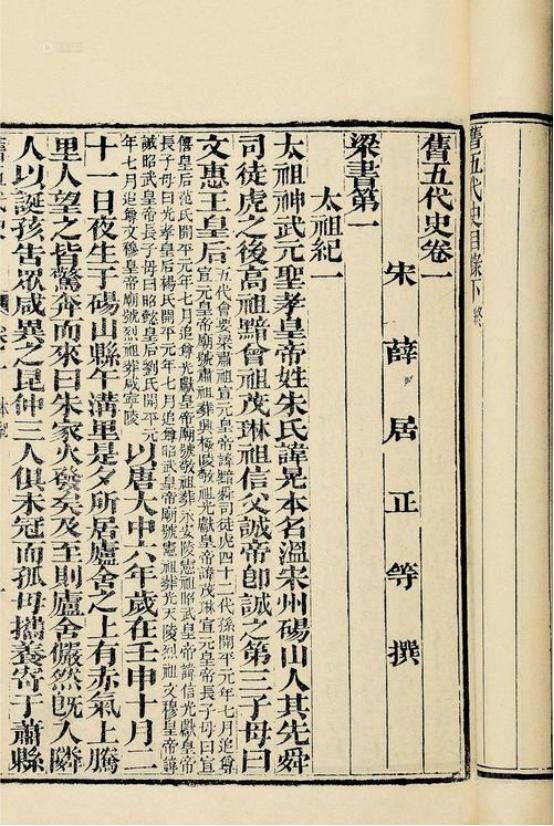 舊五代史目錄下 終
舊五代史卷一
宋 薛 居 正 等 撰
梁書第一
太祖紀一
太祖神武元聖孝皇帝姓朱氏諱晃本名溫宋州碭山人其先舜
司徒虎之後高祖黯曾祖茂琳祖信父誠帝卽誠之第三子母曰
文惠王皇后
五代會要梁肅祖宣元皇帝諱黯舜司徒虎四十二代孫開平元年七月追尊
宣元皇帝廟號肅祖葬興極陵敬祖光獻皇帝諱茂琳宣元皇帝長子母曰宣
僖皇后范氏開平元年七月追尊光獻皇帝廟號敬祖葬永安陵憲祖昭武皇帝諱信光獻皇帝
長子母曰光孝皇后楊氏開平元年七月追尊昭武皇帝廟號憲祖葬光天陵烈祖文穆皇帝諱
誠昭武皇帝長子母曰昭懿皇后劉氏開平元
年七月追尊文穆皇帝廟號烈祖葬咸寧陵
以唐大中六年歲在壬申十月二
十一日夜生于碭山縣午溝里是夕所居廬舍之上有赤氣上騰
里人望之皆驚奔而來曰朱家火發矣及至則廬舍儼然旣入隣
人以誕孩告眾咸異之昆仲三人俱未冠而孤母攜養寄于蕭縣